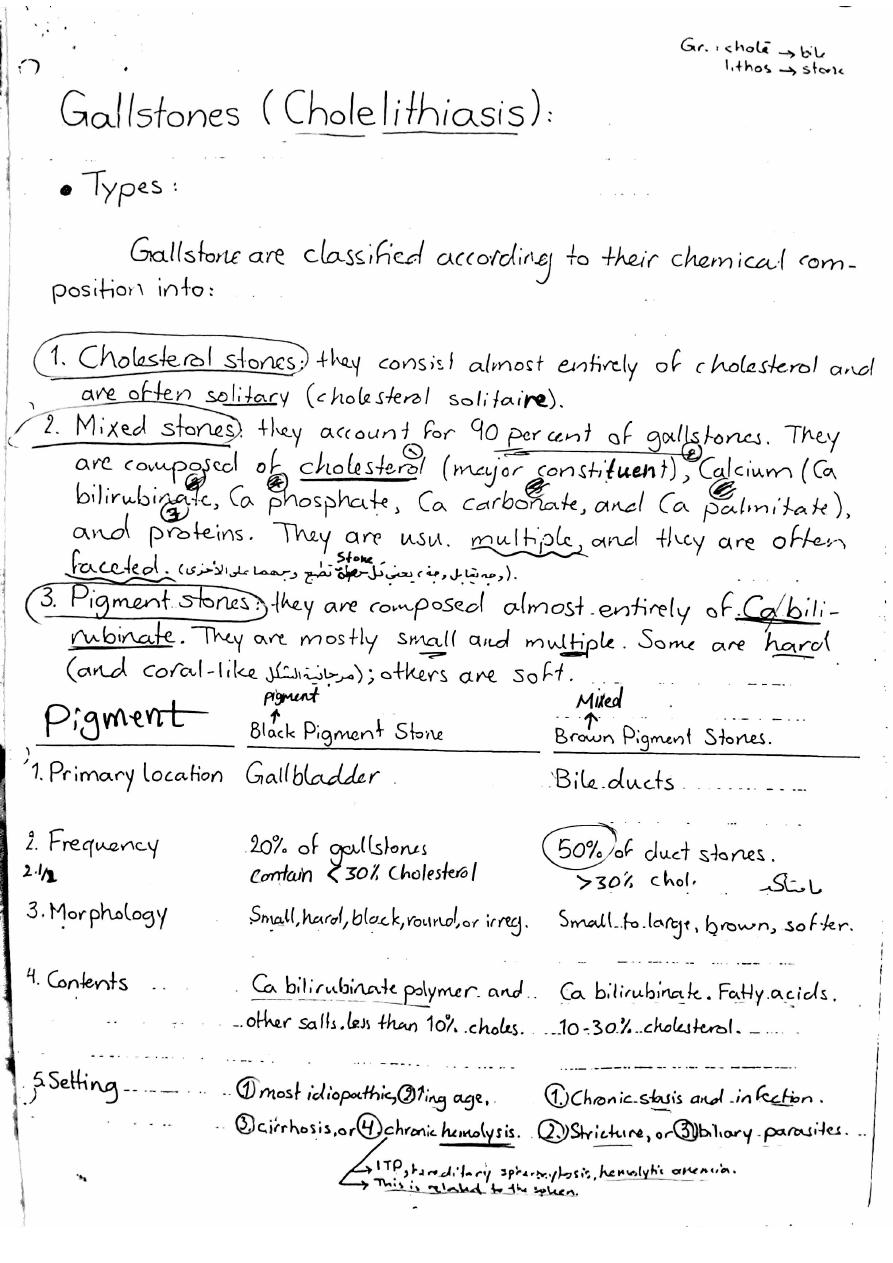 Gr. : cholē → bile
lithos → stone
Gallstones (Cholelithiasis):
• Types:
Gallstone are classified according to their chemical com-
position into:
1. Cholesterol stones: they consist almost entirely of cholesterol and
are often solitary (cholesterol solitaire).
2. Mixed stones: they account for 90 per cent of gallstones. They
are composed of cholesterol (major constituent), Calcium (Ca
bilirubinate, Ca phosphate, Ca carbonate, and Ca palmitate),
and proteins. They are usu. multiple, and they are often
Stone
faceted. (وجه تقابل وجه، يعني كل تضع وجهها على الأخرى).
3. Pigment stones: they are composed almost entirely of Ca/bili-
rubinate. They are mostly small and multiple. Some are hard
(and coral-like مرجانية الشكل); others are soft.
pigment ↑ Mixed ↑
Pigment Black Pigment Stone Brown Pigment Stones.
1. Primary location Gallbladder Bile ducts
2. Frequency 20% of gallstones 50% of duct stones.
2.1/2 contain < 30% Cholesterol >30% chol.
3. Morphology Small, hard, black, round, or irreg. Small to large, brown, softer.
4. Contents Ca bilirubinate polymer and Ca bilirubinate. Fatty acids.
other salts. less than 10% choles. 10-30% cholesterol.
5. Setting ① most idiopathic, ② ↑ing age, ① Chronic stasis and infection.
③ cirrhosis, or ④ chronic hemolysis. ② Stricture, or ③ biliary parasites.
→ ITP, hereditary spherocytosis, hemolytic anemia.
→ This is related to the spleen.